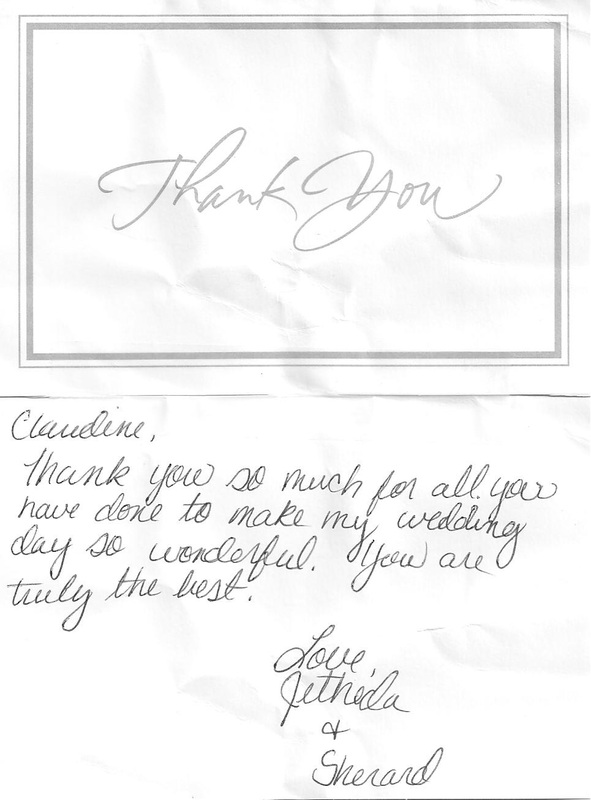 Thank You
Claudine,
Thank you so much for all you
have done to make my wedding
day so wonderful. You are
truly the best.
Love,
Jetheda
&
Sherard